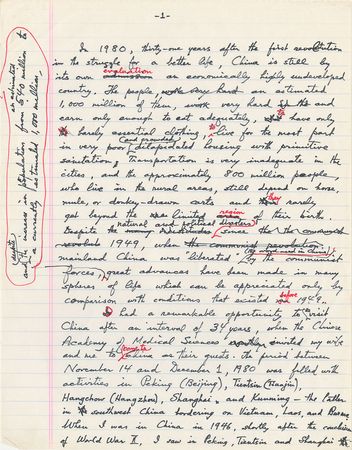 -1-
In 1980, thirty-one years after the first revolution
in the struggle for a better life, China is still by
its own evaluation an economically highly undeveloped
country. The people, work very hard an estimated
1,000 million of them, work very hard and
earn only enough to eat adequately, to have only
barely essential clothing, to live for the most part
in very poor (and crowded) dilapodated housing with primitive
sanitation. Transportation is very inadequate in the
cities, and the approximately 800 million people
who live in the rural areas, still depend on horse,
mule, or donkey-drawn carts and they rarely
get beyond the limited region of their birth.
Despite the many natural and political disasters since
1949, when the communist revolution
mainland China was "liberated" (by agreement in China) by the communist
forces, great advances have been made in many
spheres of life which can be appreciated only by
comparison with conditions that existed before 1949.
I had a remarkable opportunity to visit
China after an interval of 34 years, when the Chinese
Academy of Medical Sciences invited my wife
and me to come to China as their guests. The period between
November 14 and December 1, 1980 was filled with
activities in Peking (Beijing), Tientsin (Tianjin),
Hangchow (Hangzhou), Shanghai and Kunming - the latter
in southwest China bordering on Vietnam, Laos, and Burma.
When I was in China in 1946, shortly after the conclusion
of World War II, I saw in Peking, Tientsin and Shanghai
despite an estimated
increase in population from 540 million to
a currently estimated 1,000 million,